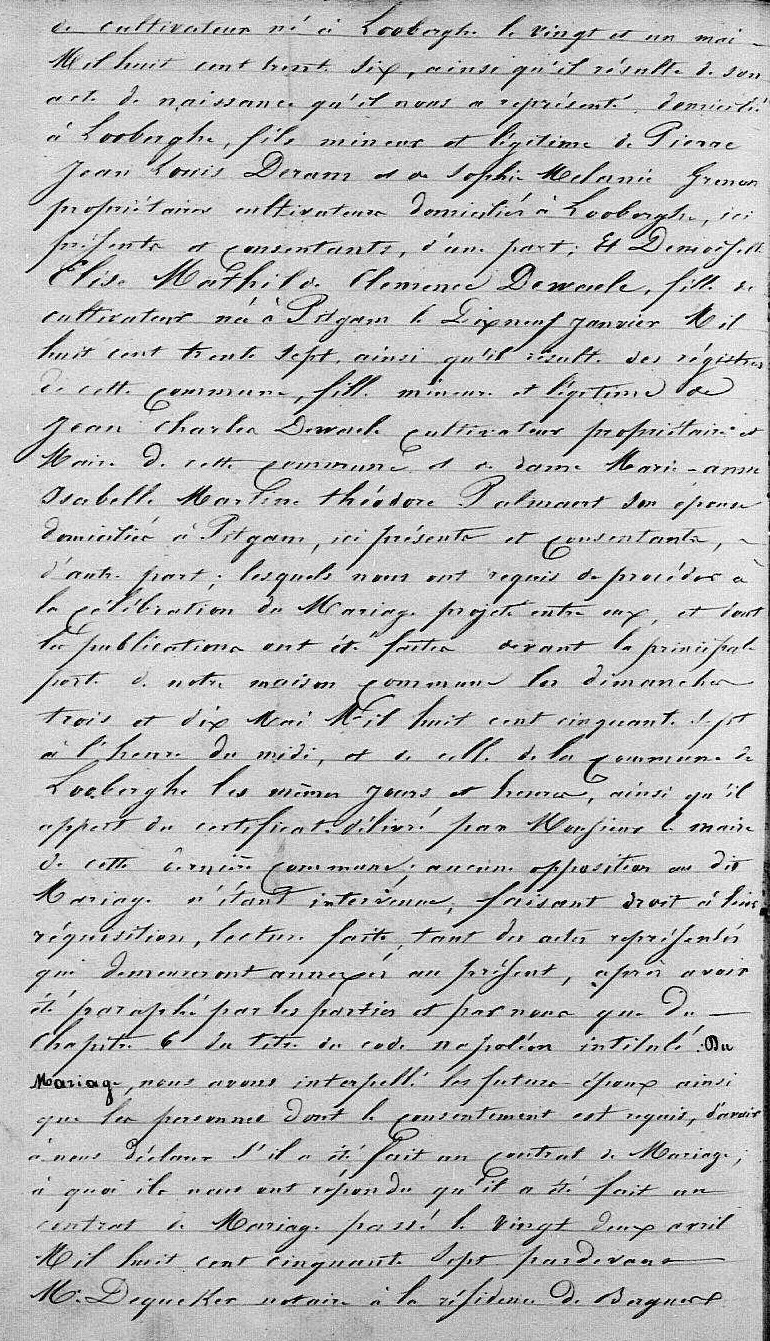 de cultivateur né à Looberghe le vingt et un mai
Mil huit cent trente six, ainsi qu'il résulte de son
acte de naissance qu'il nous a représenté, domicilié
à Looberghe, fils mineur et légitime de Pierre
Jean Louis Deram et de Sophie Melanie
propriétaires cultivateurs domiciliés à Looberghe, ici
présents et consentants, d'une part; Et Demoiselle
Elise Mathilde Clemence Dewaele, fille de
cultivateur née à Pitgam le Dixneuf Janvier Mil
huit cent trente sept, ainsi qu'il résulte des régistres
de cette commune, fille mineure et légitime de
Jean Charles Dewaele cultivateur propriétaire et
Maire de cette commune et de dame Marie-anne
Isabelle Martine théodore Palmaert son épouse
domiciliés à Pitgam, ici présents et consentants,
d'autre part; lesquels nous ont requis de procéder à
la célébration du Mariage projeté entre eux, et dont
les publications ont été faites devant la principale
porte de notre maison commune les dimanches
trois et dix Mai Mil huit cent cinquante sept
à l'heure du midi, et de celle de la commune de
Looberghe les mêmes jours et heures, ainsi qu'il
appert du certificat délivré par Monsieur le maire
de cette dernière commune; aucune opposition au dit
Mariage n'étant intervenue, faisant droit à leur
réquisition, lecture faite, tant des actes représentés
qui demeureront annexés au présent, après avoir
été paraphé par les parties et par nous que du
Chapitre 6 du titre du code napoléon intitulé: Du
Mariage, nous avons interpellé les futurs époux ainsi
que les personnes dont le consentement est requis, d'avoir
à nous déclarer s'il a été fait un contrat de Mariage;
à quoi ils nous ont répondu qu'il a été fait un
contrat de Mariage passé le vingt deux avril
Mil huit cent cinquante sept pardevant
Mr. Dequeker notaire à la résidence de Bergues